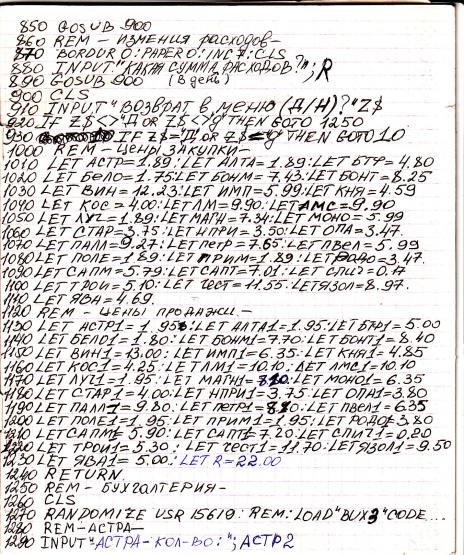 850 GOSUB 900
860 REM - ИЗМЕНИЯ расходов -
870 BORDUR 0: PAPER 0: INC 7: CLS
880 INPUT "КАКАЯ СУММА РАСХОДОВ?"; R
890 GOSUB 900 (в день)
900 CLS
910 INPUT "ВОЗВРАТ В МЕНЮ (Д/Н)?" Z$
920 IF Z$<>"Д OR Z$<>"д" THEN GOTO 1250
930 IF Z$="Д OR Z$="д THEN GOTO 10
1000 REM - ЦЕНЫ ЗАКУПКИ -
1010 LET АСТР=1.89: LET АЛТА=1.89: LET БТР=4.80
1020 LET БЕЛО=1.75: LET БОНМ=7.43: LET БОНТ=8.25
1030 LET ВИН=12.23: LET ИМП=5.99: LET КНЯ=4.59
1040 LET КОС=4.00: LET ЛМ=9.90: LET ЛМС=9.90
1050 LET ЛУЧ=1.89: LET МАГН=7.34: LET МОНО=5.99
1060 LET СТАР=3.75: LET НПРИ=3.50: LET ОПА=3.47
1070 LET ПАЛЛ=9.27: LET ПЕТР=7.65: LET ПВЕЛ=5.99
1080 LET ПОЛЕ=1.89: LET ПРИМ=1.89: LET РОДО=3.47.
1090 LET САПМ=5.79: LET САПТ=7.01: LET СПИЧ=0.17
1100 LET ТРОИ=5.10: LET ЧЕСТ=11.55: LET ЯЗОЛ=8.97.
1110 LET ЯВА=4.69.
1120 REM - ЦЕНЫ ПРОДАЖИ -
1130 LET АСТР1=1.95: LET АЛТА1=1.95: LET БТР1=5.00
1140 LET БЕЛО1=1.80: LET БОНМ1=7.70: LET БОНТ1=8.40
1150 LET ВИН1=13.00: LET ИМП1=6.35: LET КНЯ1=4.85
1160 LET КОС1=4.25: LET ЛМ1=10.10: LET ЛМС1=10.10
1170 LET ЛУЧ1=1.95: LET МАГН1= LET МОНО1=6.35
1180 LET СТАР1=4.00: LET НПРИ1=3.75: LET ОПА1=3.80
1190 LET ПАЛЛ1=9.80: LET ПЕТР1= LET ПВЕЛ1=6.35
1200 LET ПОЛЕ1=1.95: LET ПРИМ1=1.95: LET РОДО1=3.80
1210 LET САПМ1=5.90: LET САПТ1=7.20: LET СПИЧ1=0.20
1220 LET ТРОИ1=5.30: LET ЧЕСТ1=11.70 LET ЯЗОЛ1=9.50
1230 LET ЯВА1=5.00: LET R=22.00
1240 RETURN.
1250 REM - БУХГАЛТЕРИЯ -
1260 CLS
1270 RANDOMIZE USR 15619: REM: LOAD "BUX3" CODE....
1280 REM - АСТРА -
1290 INPUT "АСТРА - КОЛ-ВО:"; АСТР2